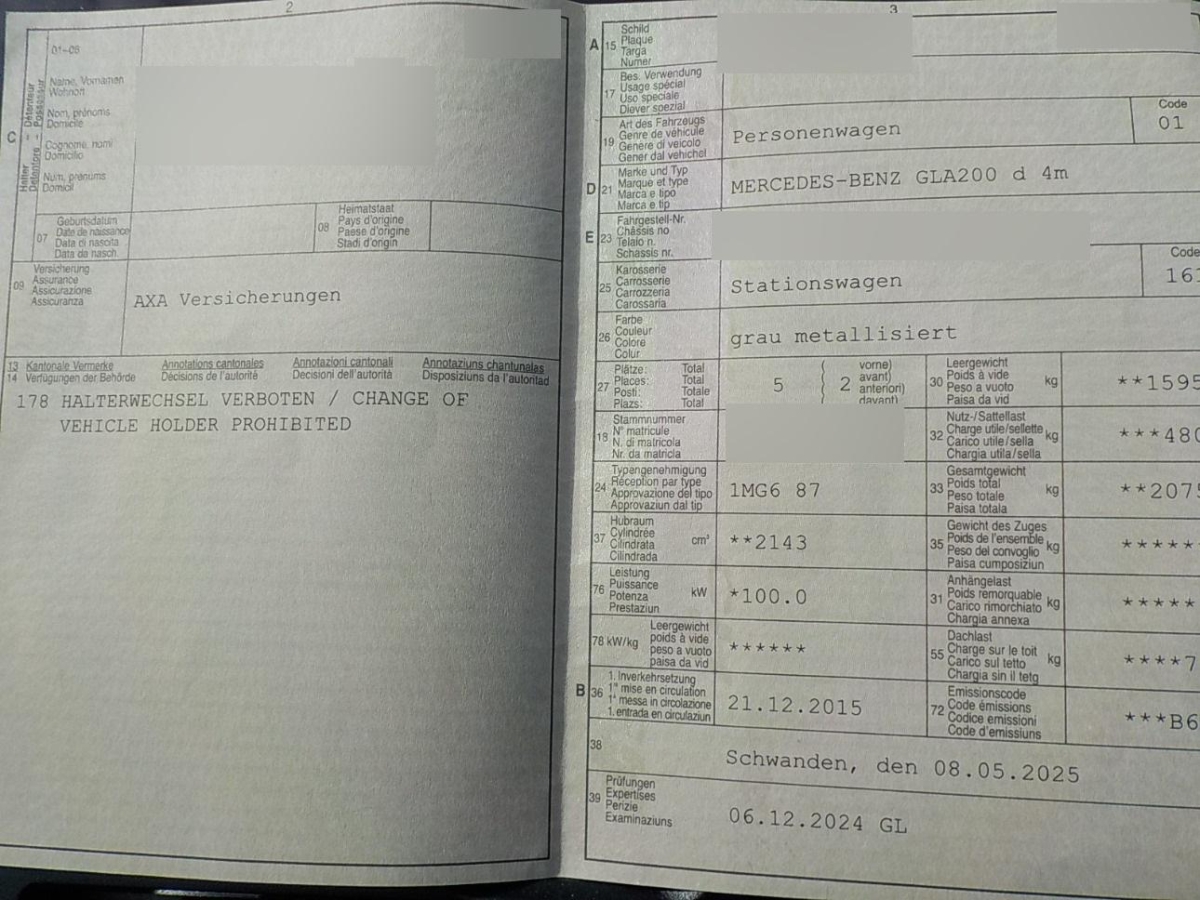 2
01–06
Name, Vornamen
Wohnort
Nom, prénoms
Domicile
Cognome, nomi
Domicilio
Num, prenums
Domicil
C
Halter – Détenteur
Detentore – Possessur
07
Geburtsdatum
Date de naissance
Data di nascita
Data da nasch.
08
Heimatstaat
Pays d'origine
Paese d'origine
Stadi d'origin
09
Versicherung
Assurance
Assicurazione
Assicuranza
AXA Versicherungen
13 Kantonale Vermerke Annotations cantonales Annotazioni cantonali Annotaziuns chantunalas
14 Verfügungen der Behörde Décisions de l'autorité Decisioni dell'autorità Disposiziuns da l'autoritad
178 HALTERWECHSEL VERBOTEN / CHANGE OF
VEHICLE HOLDER PROHIBITED
3
A 15
Schild
Plaque
Targa
Numer
17
Bes. Verwendung
Usage spécial
Uso speciale
Diever spezial
19
Art des Fahrzeugs
Genre de véhicule
Genere di veicolo
Gener dal vehichel
Personenwagen
Code
01
D 21
Marke und Typ
Marque et type
Marca e tipo
Marca e tip
MERCEDES-BENZ GLA200 d 4m
E 23
Fahrgestell-Nr.
Châssis no
Telaio n.
Schassis nr.
25
Karosserie
Carrosserie
Carrozzeria
Carossaria
Stationswagen
Code
161
26
Farbe
Couleur
Colore
Colur
grau metallisiert
27
Plätze: Total
Places: Total
Posti: Totale
Plazs: Total
5
2
vorne)
avant)
anteriori)
davant)
30
Leergewicht
Poids à vide
Peso a vuoto
Paisa da vid
kg
**1595
18
Stammnummer
N° matricule
N. di matricola
Nr. da matricla
32
Nutz-/Sattellast
Charge utile/sellette
Carico utile/sella
Chargia utila/sella
kg
***480
24
Typengenehmigung
Réception par type
Approvazione del tipo
Approvaziun dal tip
1MG6 87
33
Gesamtgewicht
Poids total
Peso totale
Paisa totala
kg
**2075
37
Hubraum
Cylindrée
Cilindrata
Cilindrada
cm³
**2143
35
Gewicht des Zuges
Poids de l'ensemble
Peso del convoglio
Paisa cumposiziun
kg
*****
76
Leistung
Puissance
Potenza
Prestaziun
kW
*100.0
31
Anhängelast
Poids remorquable
Carico rimorchiato
Chargia annexa
kg
*****
78 kW/kg
Leergewicht
poids à vide
peso a vuoto
paisa da vid
******
55
Dachlast
Charge sur le toit
Carico sul tetto
Chargia sin il tetg
kg
****7
B 36
1. Inverkehrsetzung
1re mise en circulation
1a messa in circolazione
1. entrada en circulaziun
21.12.2015
72
Emissionscode
Code émissions
Codice emissioni
Code d'emissiuns
***B6
38
Schwanden, den 08.05.2025
39
Prüfungen
Expertises
Perizie
Examinaziuns
06.12.2024 GL